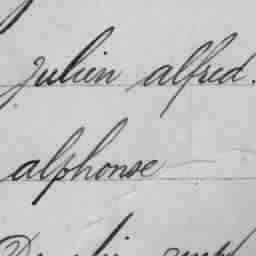 Julien alfred.
alphonse